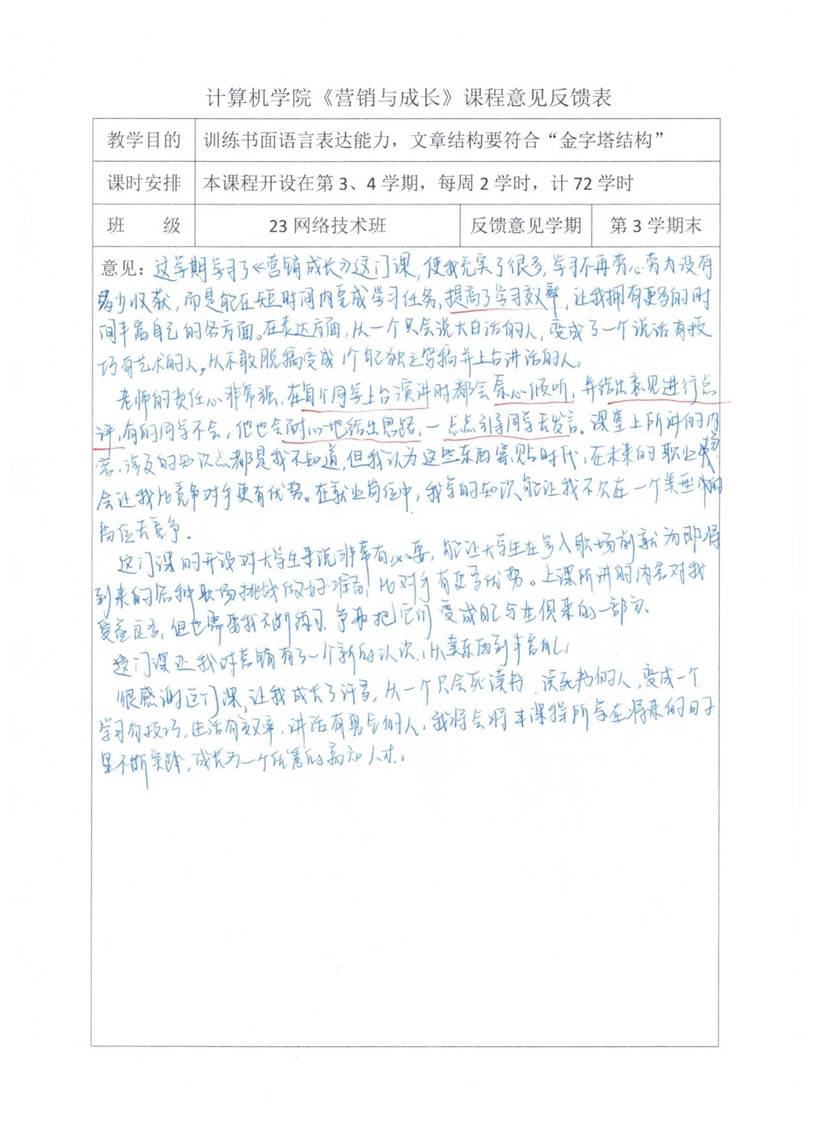 计算机学院《营销与成长》课程意见反馈表
教学目的 训练书面语言表达能力，文章结构要符合“金字塔结构”
课时安排 本课程开设在第 3、4 学期，每周 2 学时，计 72 学时
班 级 23 网络技术班 反馈意见学期 第 3 学期末
意见：这学期学习了《营销成长》这门课，使我充实了很多，学习不再劳心劳力没有
多少收获，而是能在短时间内完成学习任务，提高了学习效率，让我拥有更多的时
间丰富自己的各方面。在表达方面，从一个只会说大白话的人，变成了一个说话有技
巧有艺术的人，从不敢脱稿变成1个能独立写稿并上台讲话的人。
老师的责任心非常强，在每个同学上台演讲时都会用心倾听，并给出意见进行点
评，有的同学不会，他也会耐心地给出思路，一点点引导同学去发言。课堂上所讲的内
容、涉及的知识点都是我不知道，但我认为这些东西紧贴时代，在未来的职业场
会让我比竞争对手更有优势。在就业岗位中，我学的知识能让我不只在一个类型的
岗位去竞争。
这门课的开设对大学生来说非常有必要，能让大学生在步入职场前就为即将
到来的各种职场挑战做好准备，比对手有更多优势。上课所讲的内容对我
受益良多，但也需要我不断练习，争取把它们变成自己与生俱来的一部分。
这门课让我对营销有了一个新的认识，从卖东西到丰富自己
很感谢这门课，让我成长了许多，从一个只会死读书、读死书的人，变成一个
学习有技巧，生活有效率，讲话有勇气的人，我将会将本课程所学在将来的日子
里不断实践，成长为一个优秀的高知人才。